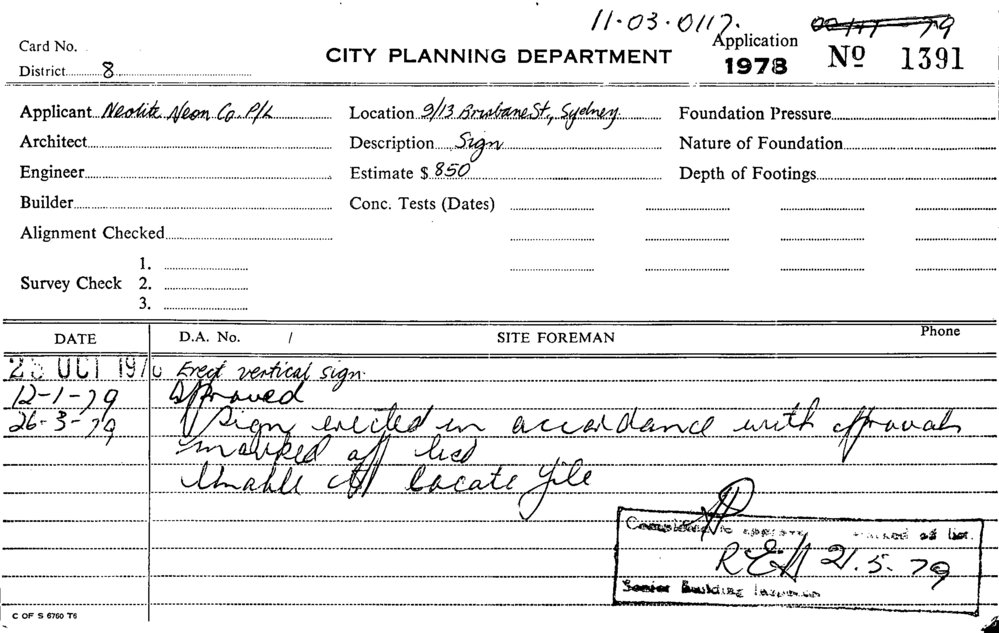 11·03·0117.
Card No.
CITY PLANNING DEPARTMENT
Application
1978 No 1391
District 8
Applicant Neolite Neon Co. P/L Location 9/13 Brisbane St., Sydney. Foundation Pressure
Architect Description Sign Nature of Foundation
Engineer Estimate $ 850 Depth of Footings
Builder Conc. Tests (Dates)
Alignment Checked
1.
Survey Check 2.
3.
DATE D.A. No. / SITE FOREMAN Phone
OCT Erect vertical sign.
12-1-79 Approved
26-3-79 Sign erected in accordance with approval
marked off list
Unable to locate file
off list.
REH 21.5.79
Senior Building Inspector
C OF S 6760 T6